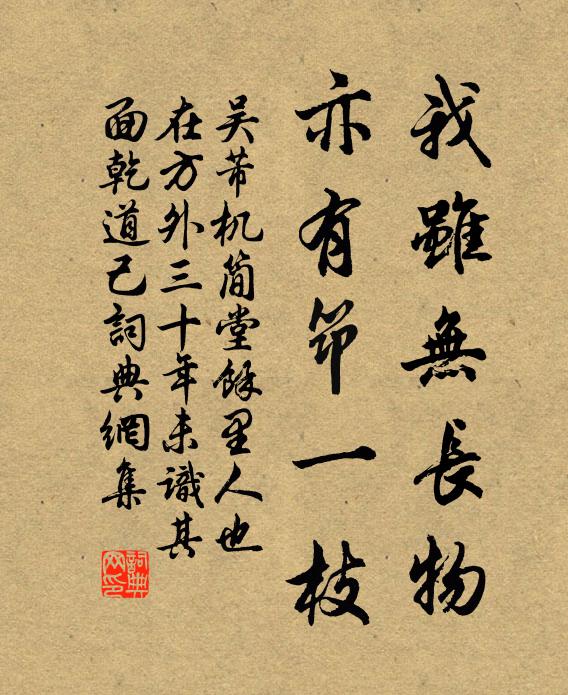 我雖無長物
亦有筇一枝
吴芾机簡堂餘里人也
在方外三十年未識其
面乾道己詞典網集
詞典
网印